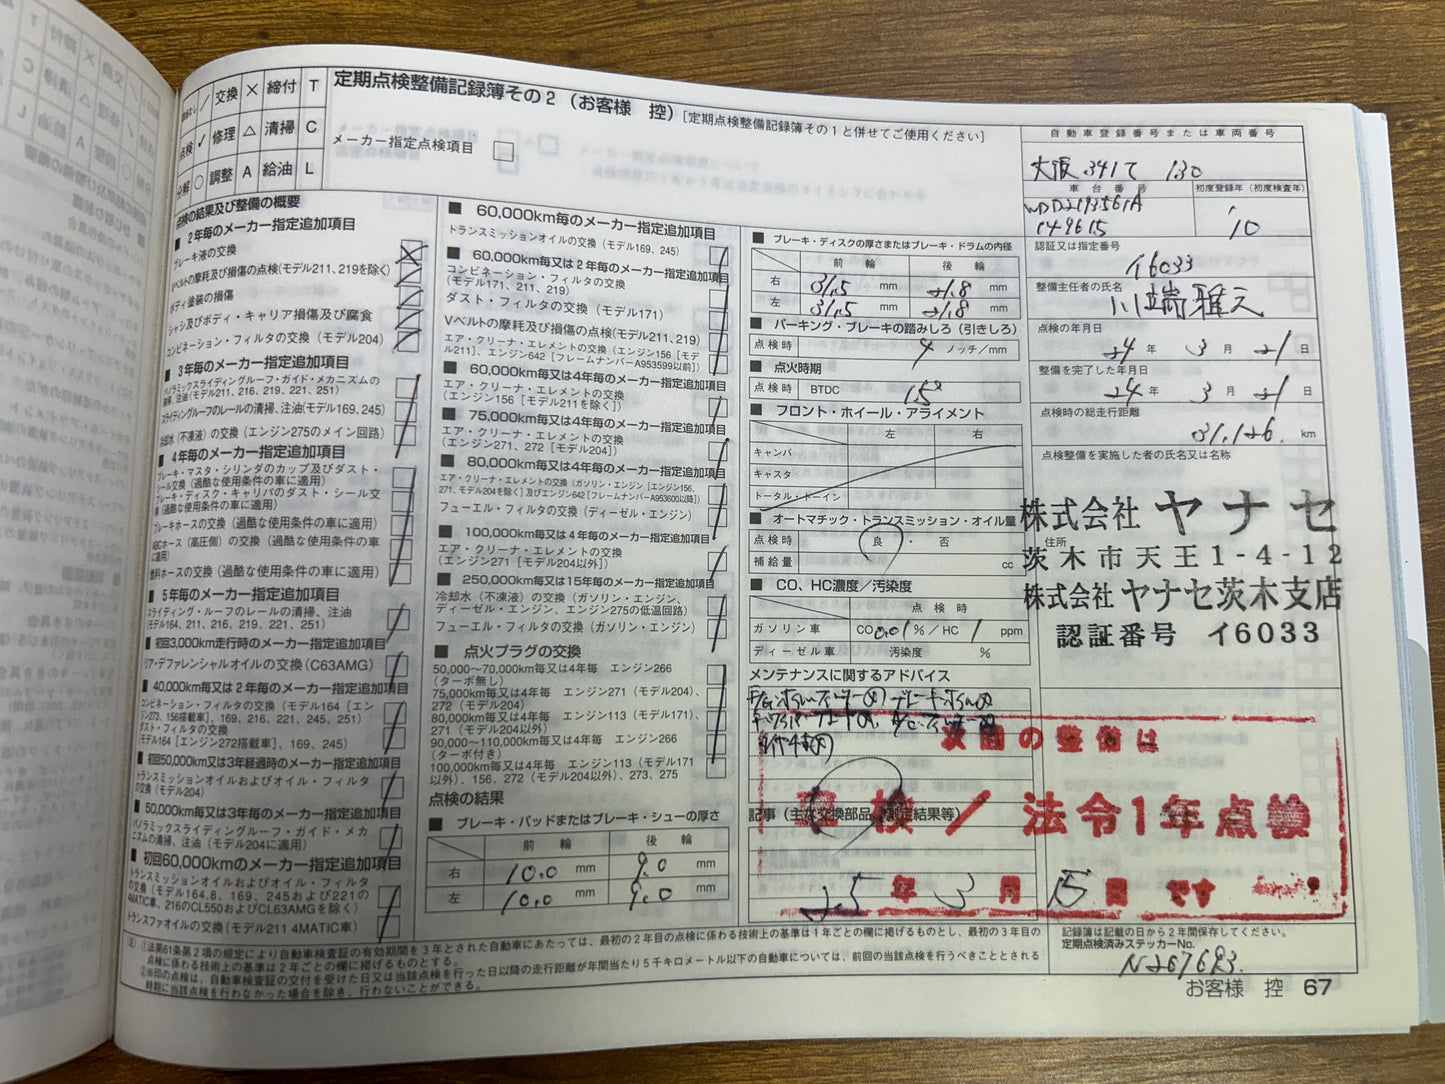 交換 × 締付 T
点検 ✓ 修理 △ 清掃 C
分解 ○ 調整 A 給油 L
定期点検整備記録簿その2(お客様 控)[定期点検整備記録簿その1と併せてご使用ください]
メーカー指定点検項目
点検の結果及び整備の概要
■ 2年毎のメーカー指定追加項目
ブレーキ液の交換
Vベルトの摩耗及び損傷の点検(モデル211、219を除く)
ボディ塗装の損傷
シャシ及びボディ・キャリア損傷及び腐食
コンビネーション・フィルタの交換(モデル204)
■ 3年毎のメーカー指定追加項目
パノラミックスライディングルーフ・ガイド・メカニズムの
清掃、注油(モデル211、216、219、221、251)
スライディングルーフのレールの清掃、注油(モデル169、245)
冷却水(不凍液)の交換(エンジン275のメイン回路)
■ 4年毎のメーカー指定追加項目
ブレーキ・マスタ・シリンダのカップ及びダスト・
シール交換(過酷な使用条件の車に適用)
ブレーキ・ディスク・キャリパのダスト・シール交
換(過酷な使用条件の車に適用)
ブレーキホースの交換(過酷な使用条件の車に適用)
ABCホース(高圧側)の交換(過酷な使用条件の車
に適用)
燃料ホースの交換(過酷な使用条件の車に適用)
■ 5年毎のメーカー指定追加項目
スライディング・ルーフのレールの清掃、注油
(モデル164、211、216、219、221、251)
■ 初回3,000km走行時のメーカー指定追加項目
リア・デファレンシャルオイルの交換(C63AMG)
■ 40,000km又は2年毎のメーカー指定追加項目
コンビネーション・フィルタの交換(モデル164[エン
ジン273、156搭載車]、169、216、221、245、251)
ダスト・フィルタの交換
(モデル164[エンジン272搭載車]、169、245)
■ 初回50,000km又は3年経過時のメーカー指定追加項目
トランスミッションオイルおよびオイル・フィルタ
の交換(モデル204)
■ 50,000km毎又は3年毎のメーカー指定追加項目
パノラミックスライディングルーフ・ガイド・メカ
ニズムの清掃、注油(モデル204に適用)
■ 初回60,000kmのメーカー指定追加項目
トランスミッションオイルおよびオイル・フィルタ
の交換(モデル164.8、169、245および221の
4MATIC車、216のCL550およびCL63AMGを除く)
トランスファオイルの交換(モデル211 4MATIC車)
■ 60,000km毎のメーカー指定追加項目
トランスミッションオイルの交換(モデル169、245)
■ 60,000km毎又は2年毎のメーカー指定追加項目
コンビネーション・フィルタの交換
(モデル171、211、219)
ダスト・フィルタの交換(モデル171)
Vベルトの摩耗及び損傷の点検(モデル211、219)
エア・クリーナ・エレメントの交換(エンジン156[モデ
ル211]、エンジン642[フレームナンバーA953599以前])
■ 60,000km毎又は4年毎のメーカー指定追加項目
エア・クリーナ・エレメントの交換
(エンジン156[モデル211を除く])
■ 75,000km毎又は4年毎のメーカー指定追加項目
エア・クリーナ・エレメントの交換
(エンジン271、272[モデル204])
■ 80,000km毎又は4年毎のメーカー指定追加項目
エア・クリーナ・エレメントの交換(ガソリン・エンジン[エンジン156、
271、モデル204を除く]及びエンジン642[フレームナンバーA953600以降])
フューエル・フィルタの交換(ディーゼル・エンジン)
■ 100,000km毎又は4年毎のメーカー指定追加項目
エア・クリーナ・エレメントの交換
(エンジン271[モデル204以外])
■ 250,000km毎又は15年毎のメーカー指定追加項目
冷却水(不凍液)の交換(ガソリン・エンジン、
ディーゼル・エンジン、エンジン275の低温回路)
フューエル・フィルタの交換(ガソリン・エンジン)
■ 点火プラグの交換
50,000〜70,000km毎又は4年毎 エンジン266
(ターボ無し)
75,000km毎又は4年毎 エンジン271(モデル204)、
272(モデル204)
80,000km毎又は4年毎 エンジン113(モデル171)、
271(モデル204以外)
90,000〜110,000km毎又は4年毎 エンジン266
(ターボ付き)
100,000km毎又は4年毎 エンジン113(モデル171
以外)、156、272(モデル204以外)、273、275
点検の結果
■ ブレーキ・パッドまたはブレーキ・シューの厚さ
前 輪 後 輪
右 10.0 mm 9.0 mm
左 10.0 mm 9.0 mm
■ ブレーキ・ディスクの厚さまたはブレーキ・ドラムの内径
前 輪 後 輪
右 31.5 mm 21.8 mm
左 31.5 mm 21.8 mm
■ パーキング・ブレーキの踏みしろ(引きしろ)
点検時 4 ノッチ/mm
■ 点火時期
点検時 BTDC 15°
■ フロント・ホイール・アライメント
左 右
キャンバ
キャスタ
トータル・トーイン
■ オートマチック・トランスミッション・オイル量
点検時 良 ・ 否
補給量 cc
■ CO、HC濃度/汚染度
点 検 時
ガソリン車 CO 0.01 %/HC 1 ppm
ディーゼル車 汚染度 %
メンテナンスに関するアドバイス
記事(主な交換部品、測定結果等)
次回の整備は
車検/法令1年点検
25年3月15日です
自動車登録番号または車両番号
大阪 341 て 130
車台番号 初度登録年(初度検査年)
WDD2193561A
149615
'10
認証又は指定番号
イ6033
整備主任者の氏名
川端雅之
点検の年月日
24年 3月 21日
整備を完了した年月日
24年 3月 21日
点検時の総走行距離
31,126 km
点検整備を実施した者の氏名又は名称
株式会社 ヤナセ
住所
茨木市天王1-4-12
株式会社ヤナセ茨木支店
認証番号 イ6033
(注)①法第61条第2項の規定により自動車検査証の有効期間を3年とされた自動車にあたっては、最初の2年目の点検に係わる技術上の基準は1年ごとの欄に掲げるものとし、最初の3年目の
点検に係わる技術上の基準は2年ごとの欄に掲げるものとする。
②※印の点検は、自動車検査証の交付を受けた日又は当該点検を行った日以降の走行距離が年間当たり5千キロメートル以下の自動車については、前回の当該点検を行うべきこととされる
時期に当該点検を行わなかった場合を除き、行わないことができる。
記録簿は記載の日から2年間保存してください。
定期点検済みステッカーNo.
N267623
お客様 控 67